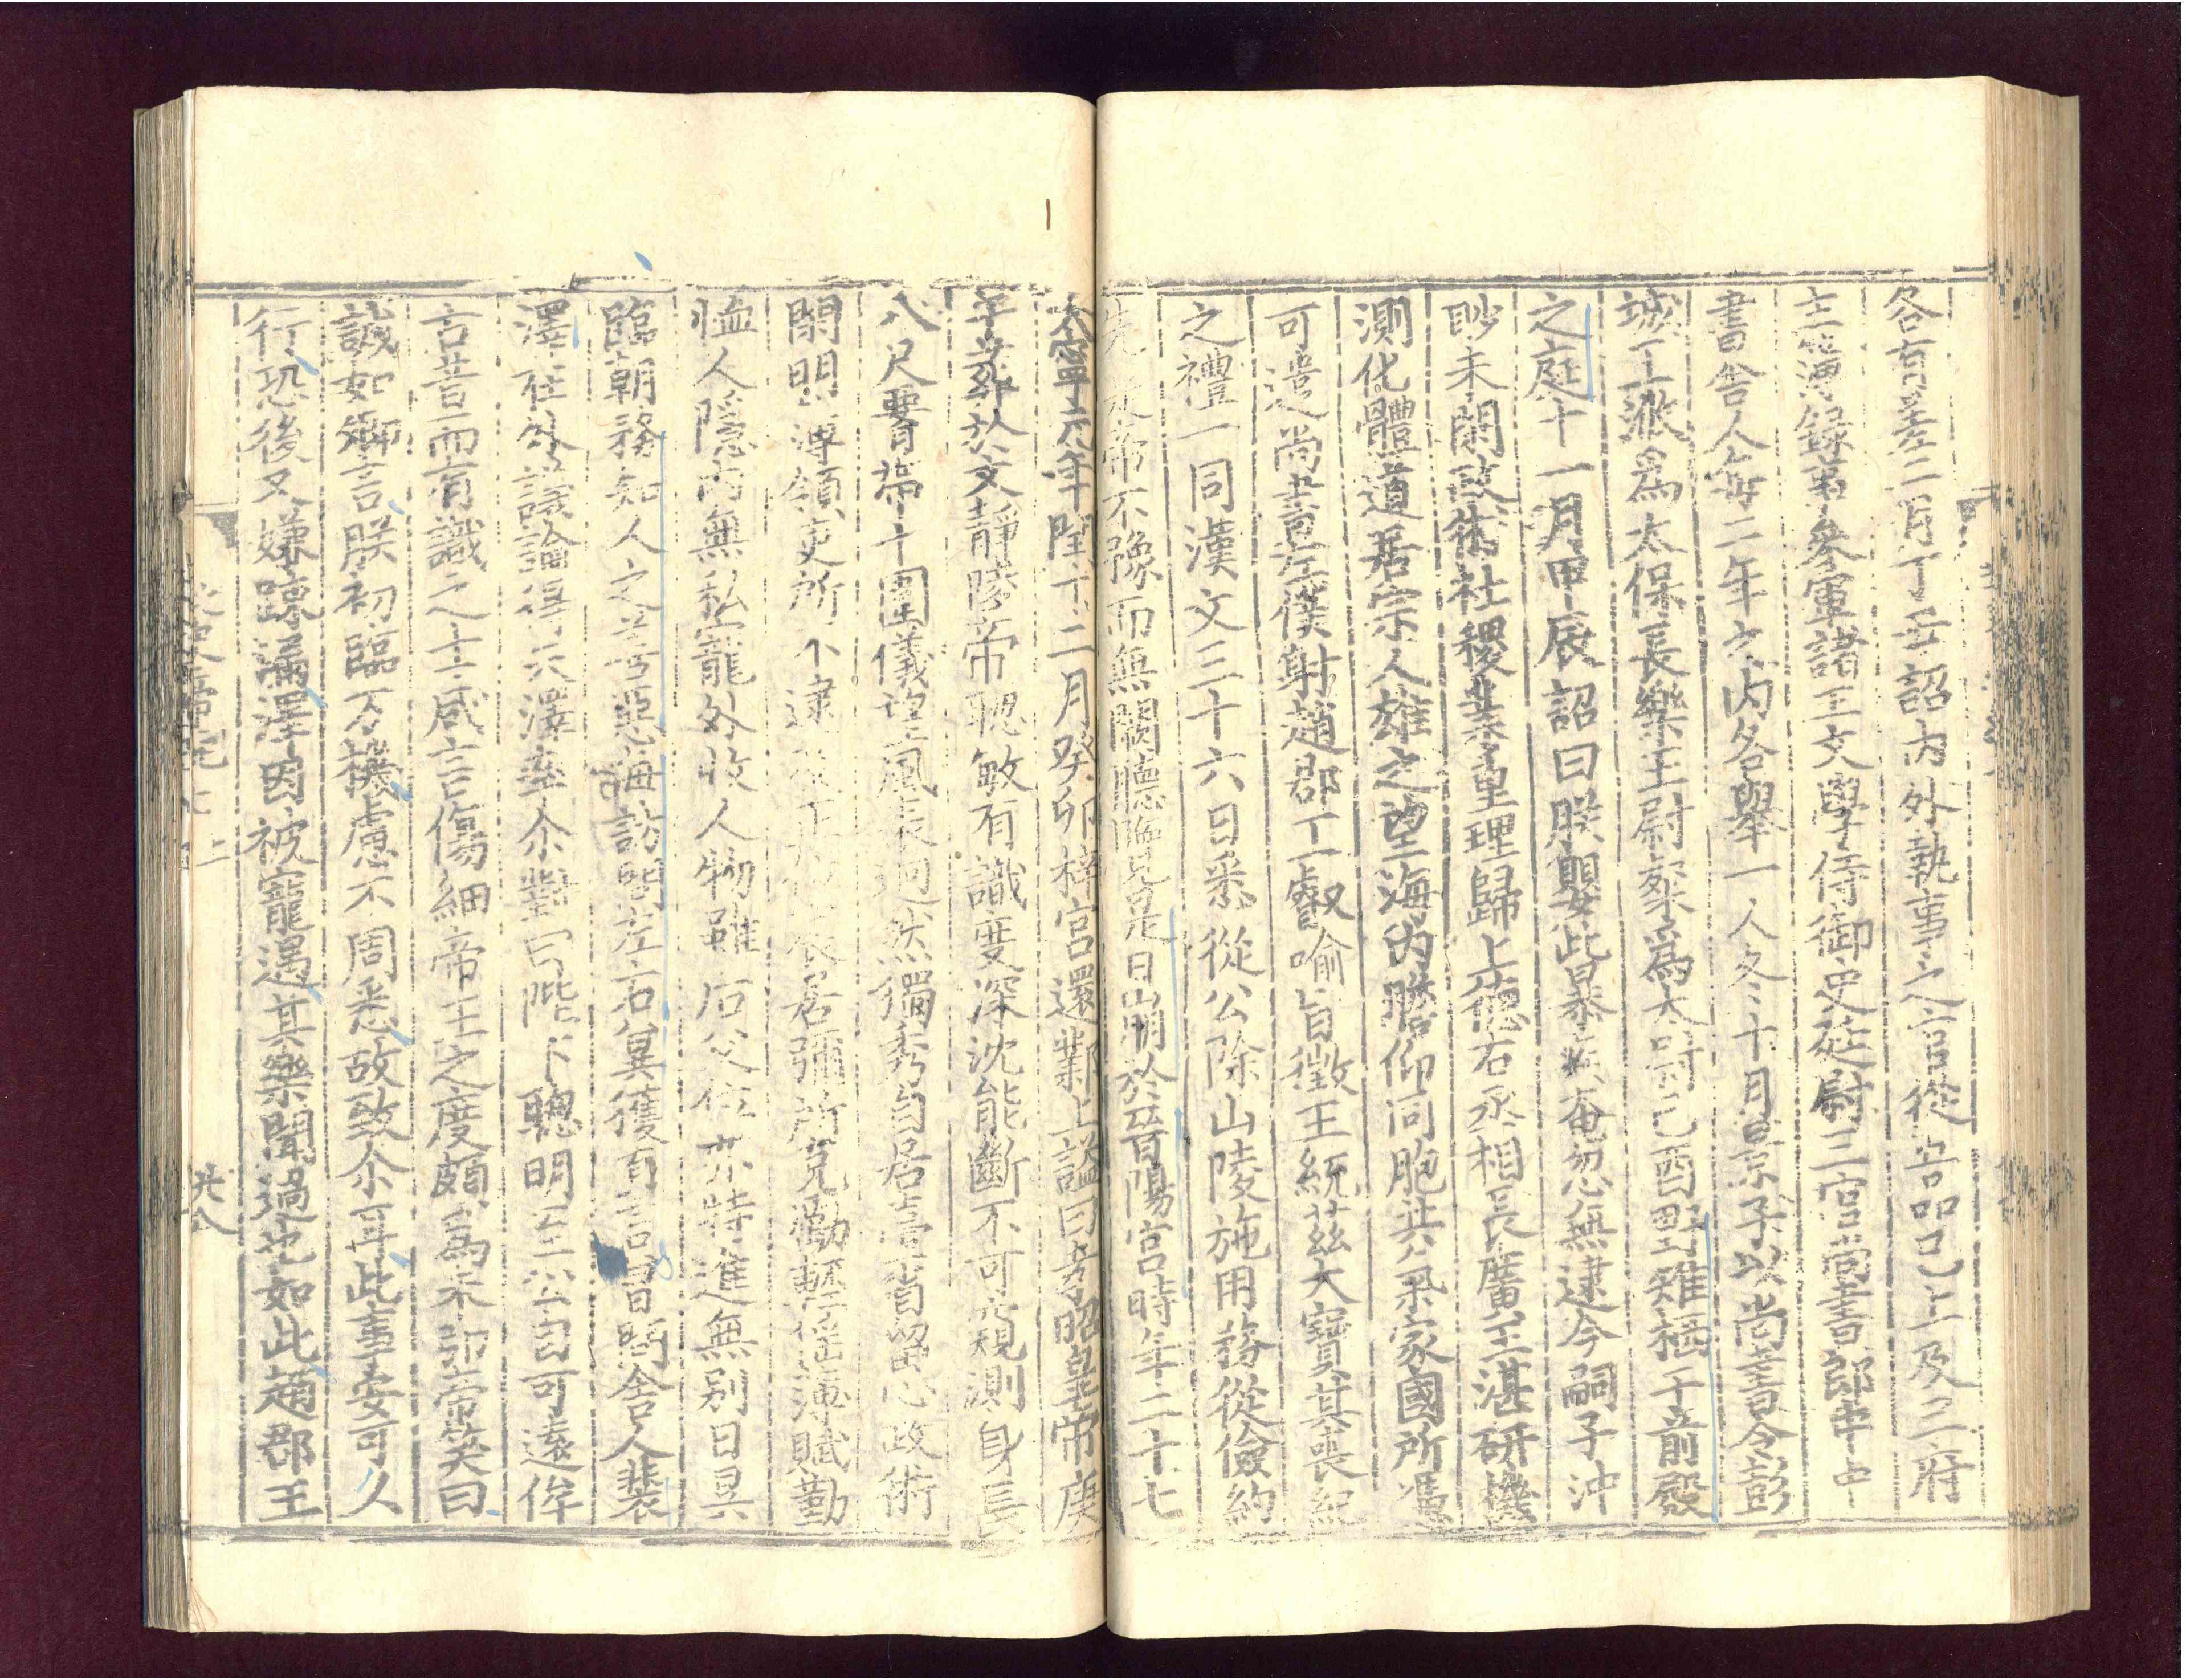 各有差二月丁丑詔內外執事之官從五品已上及三府
主簿錄事參軍諸王文學侍御史廷尉三官尚書郎中中
書舍人每二年之內各舉一人冬十月景子以尚書令彭
城王浟爲太保長樂王尉粲爲太尉己酉野雉栖于前殿
之庭十一月甲辰詔曰朕嬰此暴疾奄忽無逮今嗣子沖
眇未閑政術社稷業重理歸上德右丞相長廣王湛研機
測化體道居宗人雄之望海內瞻仰同胞共氣家國所憑
可遣尚書左僕射趙郡王叡喻旨徵王統茲大寶其喪紀
之禮一同漢文三十六日悉從公除山陵施用務從儉約
先是帝不豫而無闕聽覽是日崩於晉陽宮時年二十七
大寧元年閏十二月癸卯梓宮還鄴上諡曰孝昭皇帝庚
午葬於文靜陵帝聰敏有識度深沈能斷不可窺測身長
八尺腰帶十圍儀望風表迥然獨秀自居臺省留心政術
閑明簿領吏所不逮及正位宸居彌所克勵輕徭薄賦勤
恤人隱內無私寵外收人物雖后父位亦特進無別日昃
臨朝務知人之善惡每訪問左右冀獲直言曾問舍人裴
澤在外議論得失澤率尒對曰陛下聰明至公自可遠侔
古昔而有識之士咸言傷細帝王之度頗爲未弘帝笑曰
誠如卿言朕初臨万機慮不周悉故致尒耳此事安可久
行恐後又嫌疎漏澤因被寵遇其樂聞過也如此趙郡王